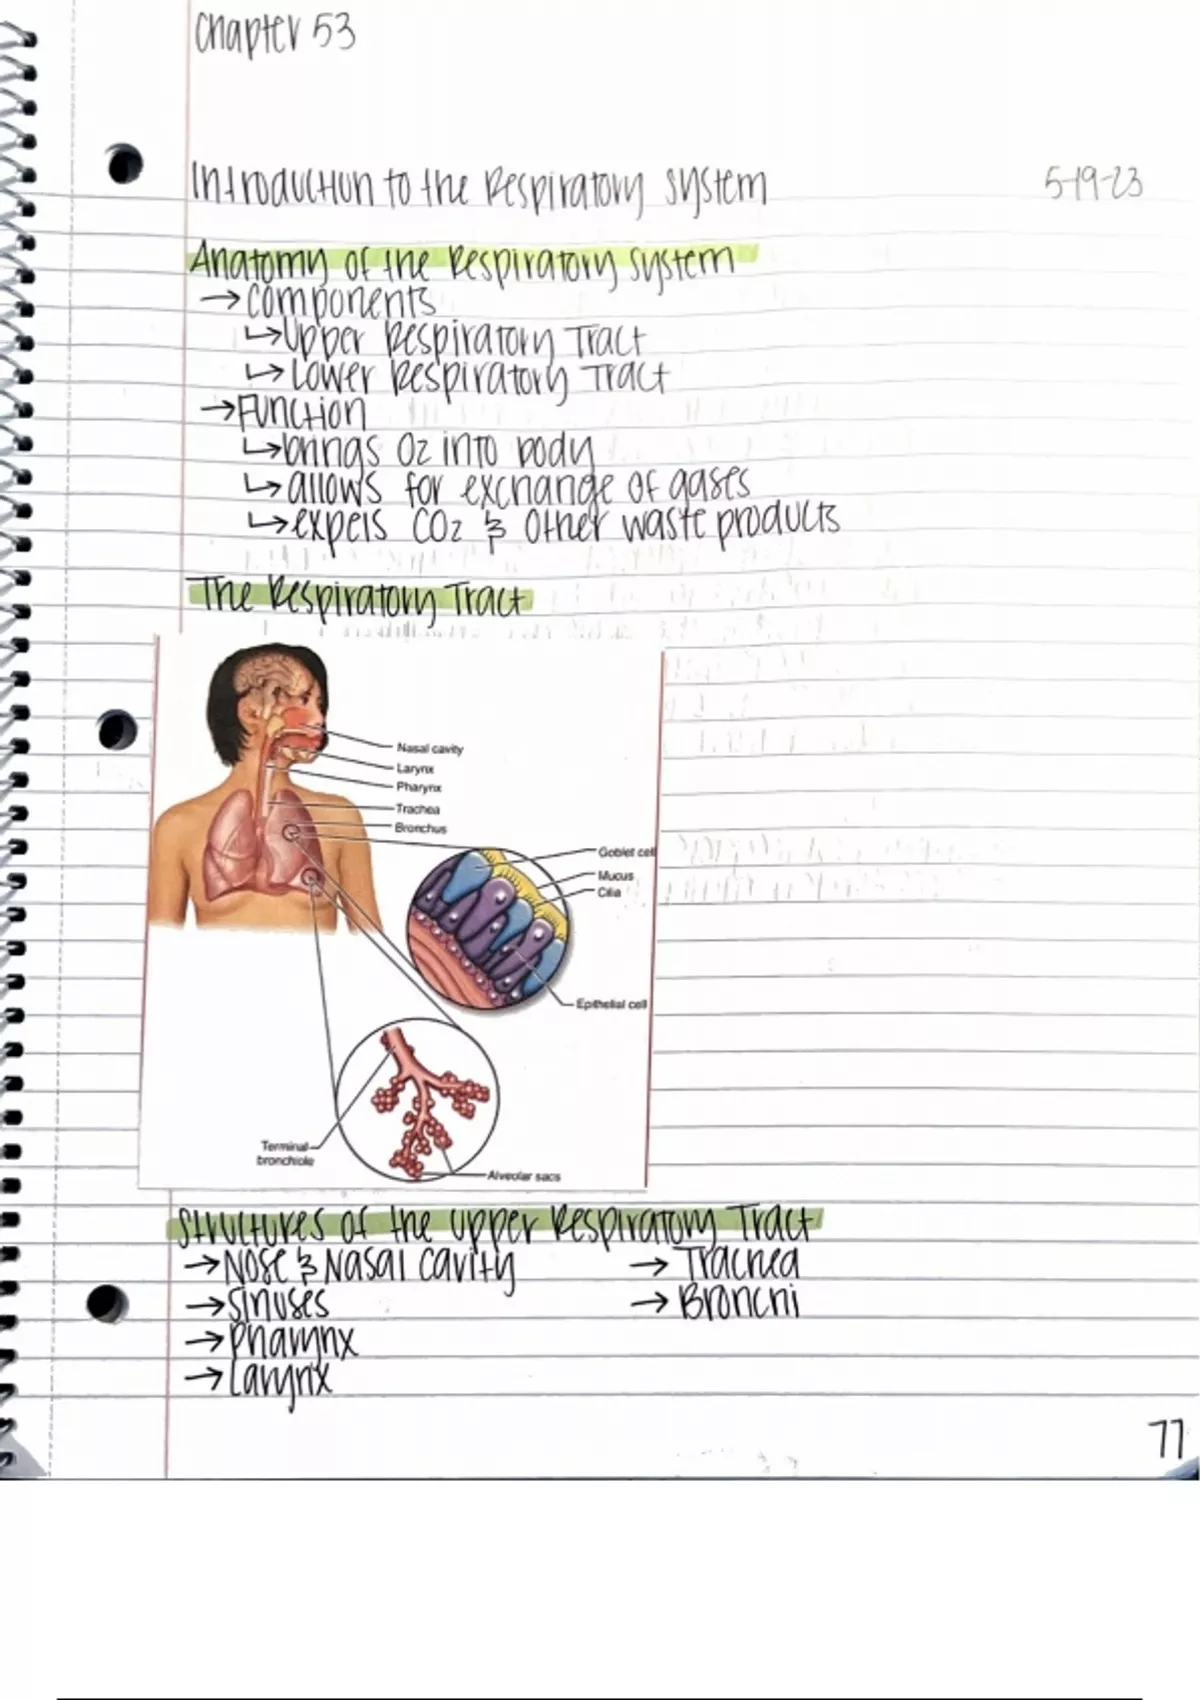 Chapter 53
Introduction to the Respiratory System 5-19-23
Anatomy of the Respiratory System
→ Components
↳ Upper Respiratory Tract
↳ Lower Respiratory Tract
→ Function
↳ brings O2 into body
↳ allows for exchange of gases
↳ expels CO2 & other waste products
The Respiratory Tract
Nasal cavity
Larynx
Pharynx
Trachea
Bronchus
Goblet cell
Mucus
Cilia
Epithelial cell
Terminal bronchiole
Alveolar sacs
Structures of the Upper Respiratory Tract
→ Nose & Nasal cavity → Trachea
→ Sinuses → Bronchi
→ Pharynx
→ Larynx
77